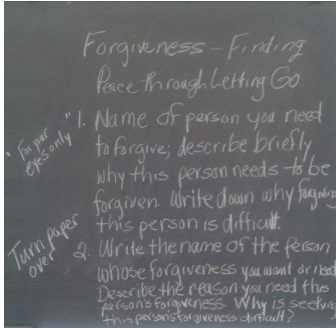 Forgiveness – Finding
Peace through Letting Go
"For your
eyes only"
1. Name of person you need
to forgive; describe briefly
why this person needs to be
forgiven. Write down why forgiving
this person is difficult.
Turn paper
over
2. Write the name of the person
whose forgiveness you want or need
Describe the reason you need this
person's forgiveness. Why is seeking
this person's forgiveness difficult?